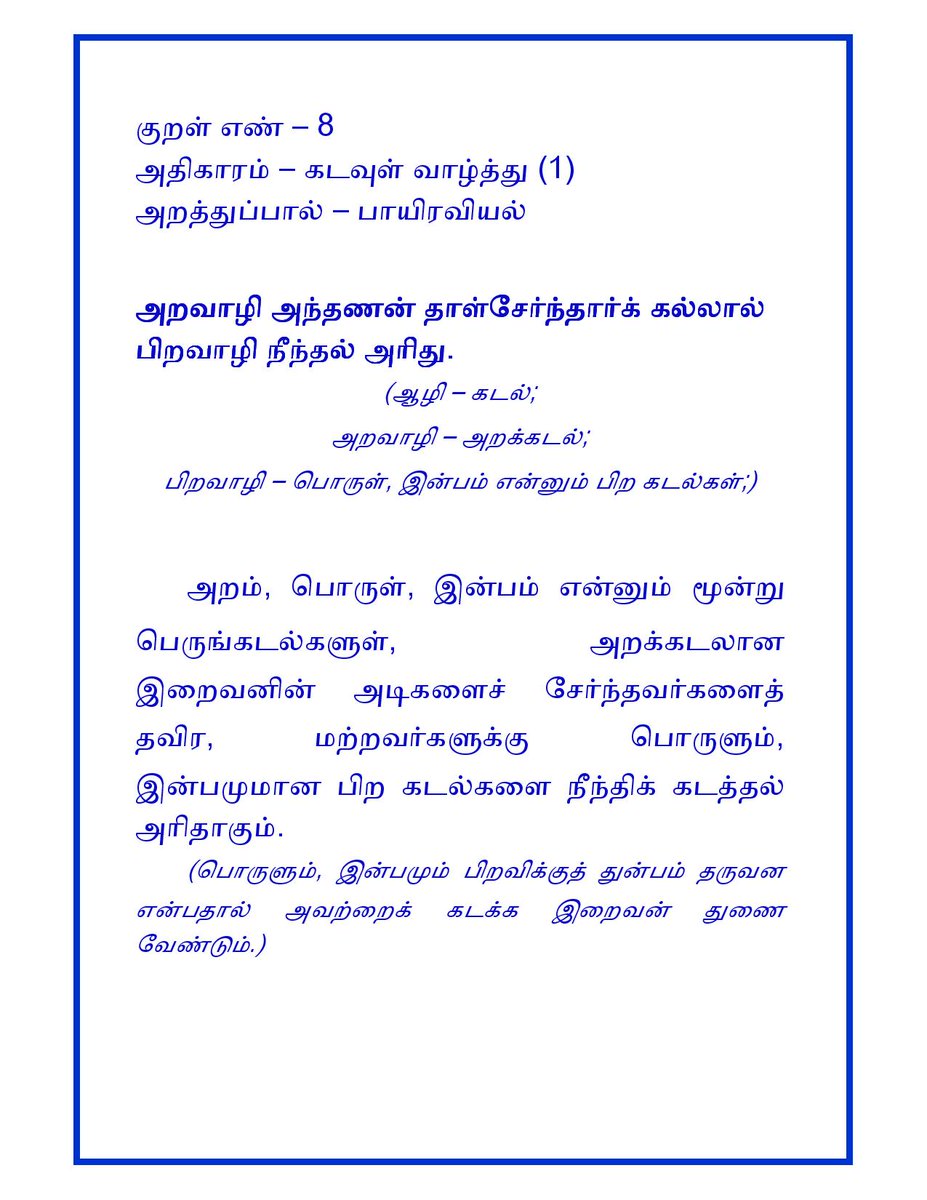 குறள் எண் – 8
அதிகாரம் – கடவுள் வாழ்த்து (1)
அறத்துப்பால் – பாயிரவியல்
அறவாழி அந்தணன் தாள்சேர்ந்தார்க் கல்லால்
பிறவாழி நீந்தல் அரிது.
(ஆழி – கடல்;
அறவாழி – அறக்கடல்;
பிறவாழி – பொருள், இன்பம் என்னும் பிற கடல்கள்;)
அறம், பொருள், இன்பம் என்னும் மூன்று
பெருங்கடல்களுள், அறக்கடலான
இறைவனின் அடிகளைச் சேர்ந்தவர்களைத்
தவிர, மற்றவர்களுக்கு பொருளும்,
இன்பமுமான பிற கடல்களை நீந்திக் கடத்தல்
அரிதாகும்.
(பொருளும், இன்பமும் பிறவிக்குத் துன்பம் தருவன
என்பதால் அவற்றைக் கடக்க இறைவன் துணை
வேண்டும்.)